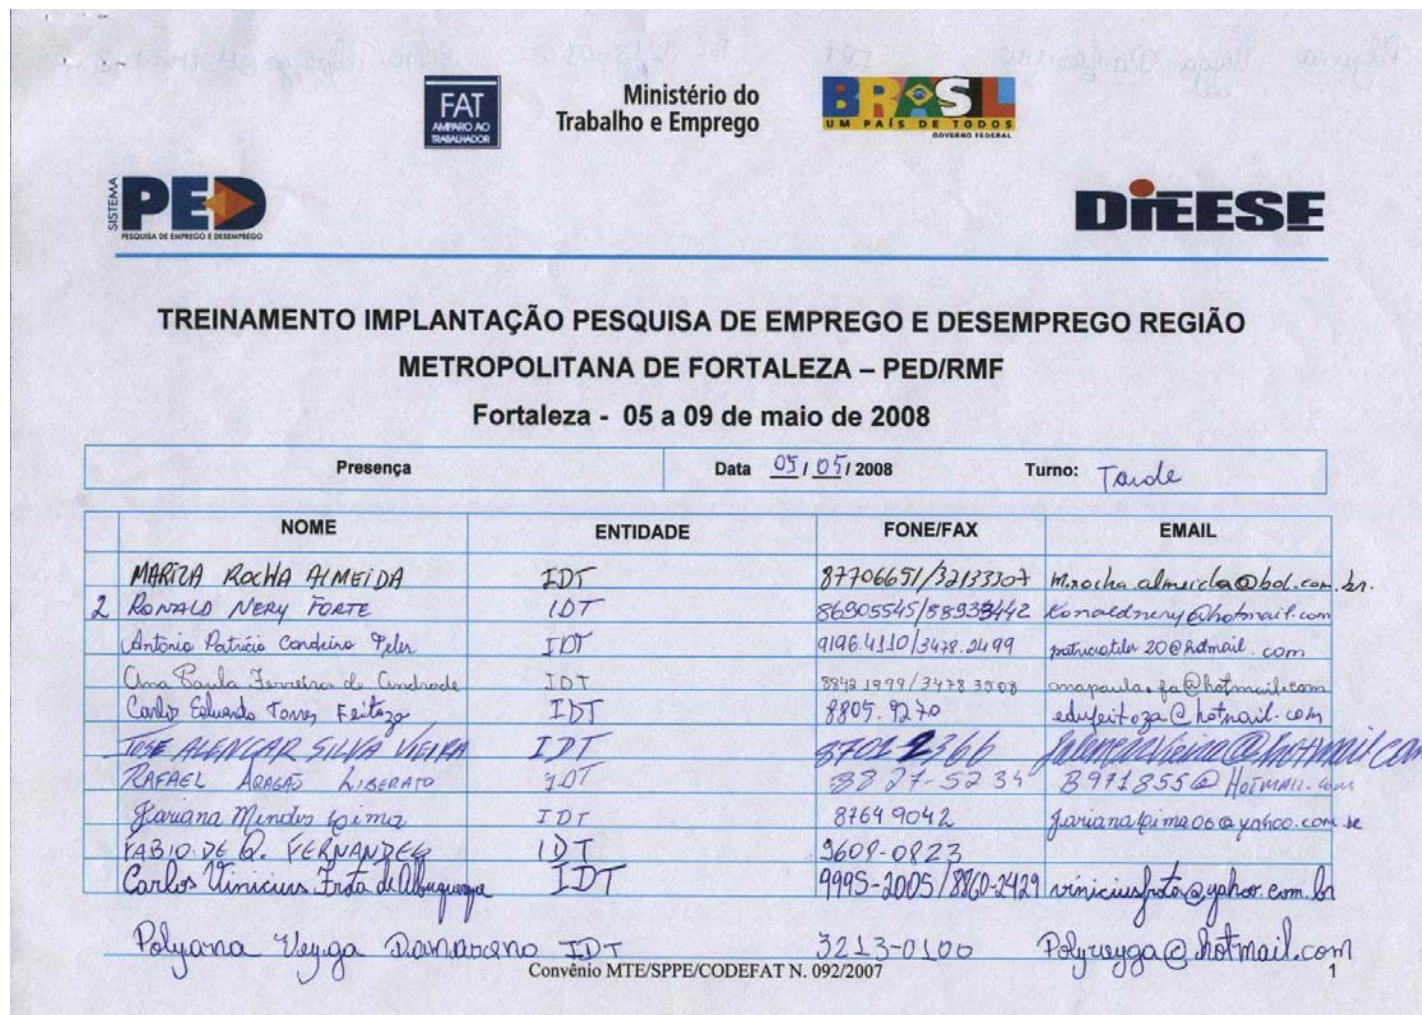 FAT
AMPARO AO
TRABALHADOR
Ministério do
Trabalho e Emprego
BRASIL
UM PAÍS DE TODOS
GOVERNO FEDERAL
SISTEMA
PED
PESQUISA DE EMPREGO E DESEMPREGO
DIEESE
TREINAMENTO IMPLANTAÇÃO PESQUISA DE EMPREGO E DESEMPREGO REGIÃO
METROPOLITANA DE FORTALEZA – PED/RMF
Fortaleza - 05 a 09 de maio de 2008
Presença Data 05/05/2008 Turno: Tarde
NOME ENTIDADE FONE/FAX EMAIL
MARIZA ROCHA ALMEIDA IDT 87706651/32133307 m.rocha.almeida@bol.com.br.
2 RONALD NERY FORTE IDT 86905545/88933442 Ronaldnery@hotmail.com
Antônio Patrício Cordeiro Teles IDT 9196.4110/3478.2499 patricioteles20@hotmail.com
Ana Paula Ferreira de Andrade IDT 8842 1999/3478 3508 anapaula.fa@hotmail.com
Carlos Eduardo Torres Feitoza IDT 8805.9270 edufeitoza@hotmail.com
JOSE ALENCAR SILVA VIEIRA IDT 87012366
RAFAEL ARAGÃO LIBERATO IDT 8827-5234 B971855@HOTMAIL.com
Jariana Mendes Lima IDT 8764 9042 jarianalima06@yahoo.com.br
FABIO DE Q. FERNANDES IDT 9608-0823
Carlos Vinicius Frota de Albuquerque IDT 9995-2005/8860-2429 viniciusfrota@yahoo.com.br
Polyana Veyga Damasceno IDT 3213-0100 Polyveyga@hotmail.com
Convênio MTE/SPPE/CODEFAT N. 092/2007
1